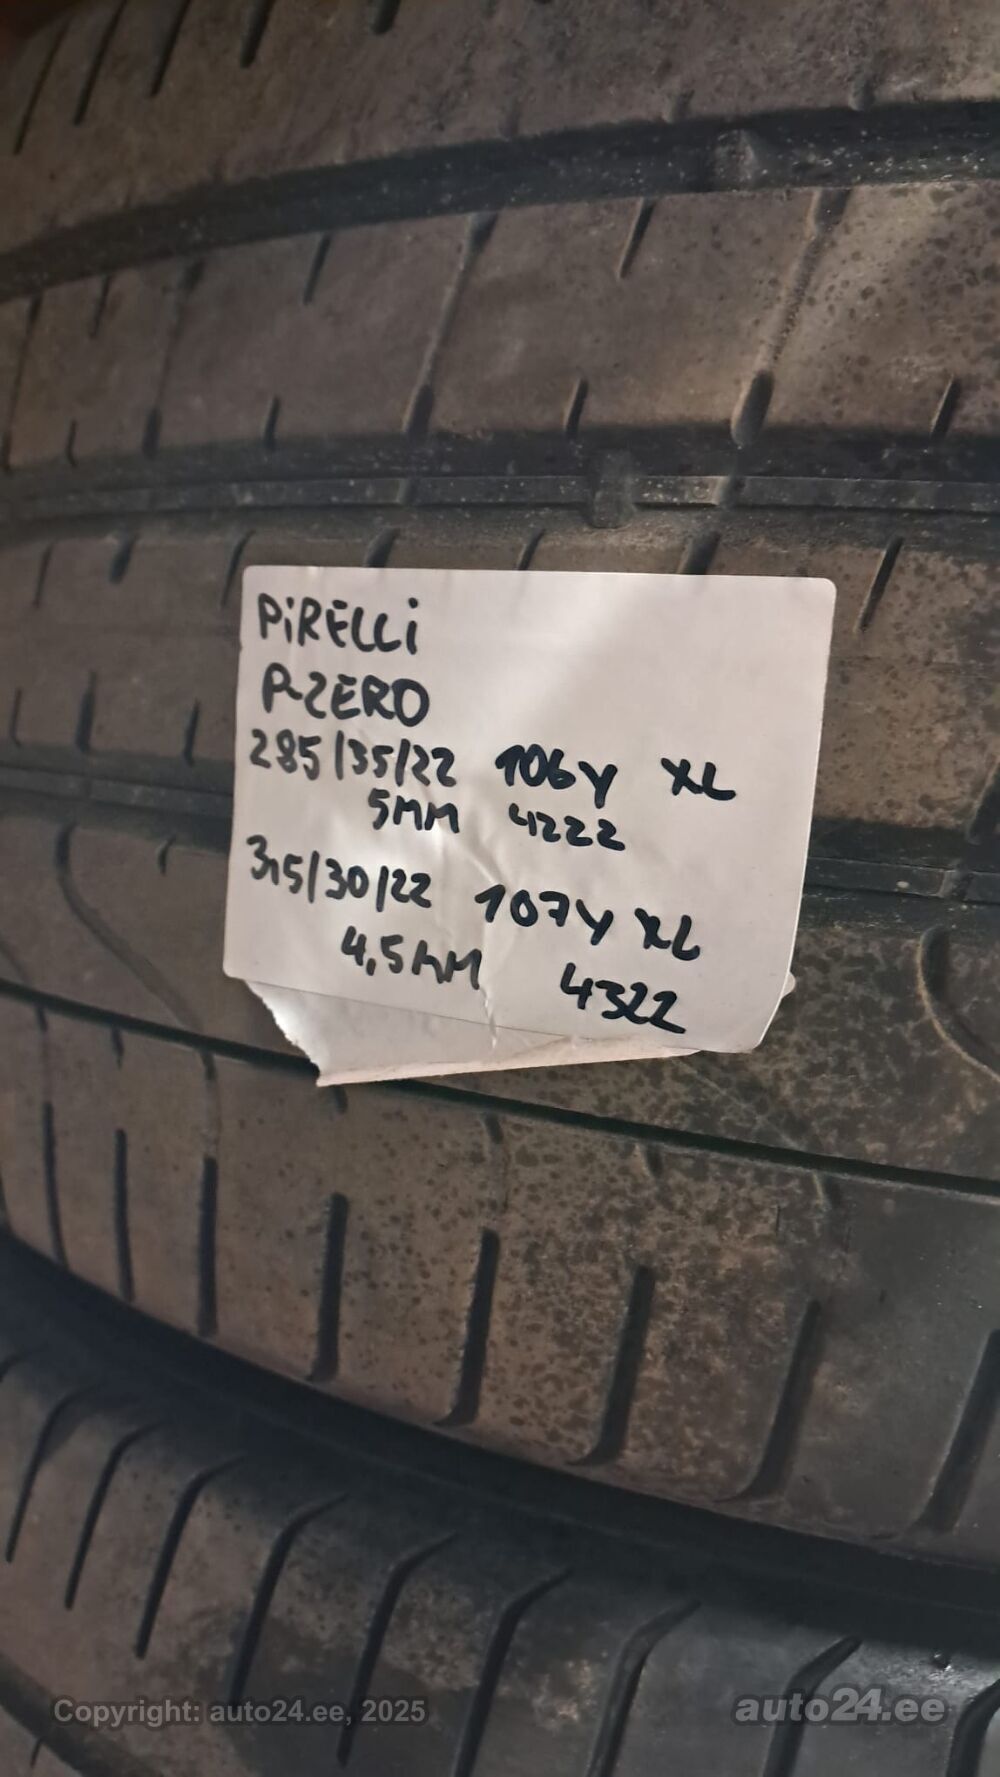 PiRELLi
P-ZERO
285/35/22 106Y XL
5MM 4222
315/30/22 107Y XL
4,5MM 4322
Copyright: auto24.ee, 2025
auto24.ee